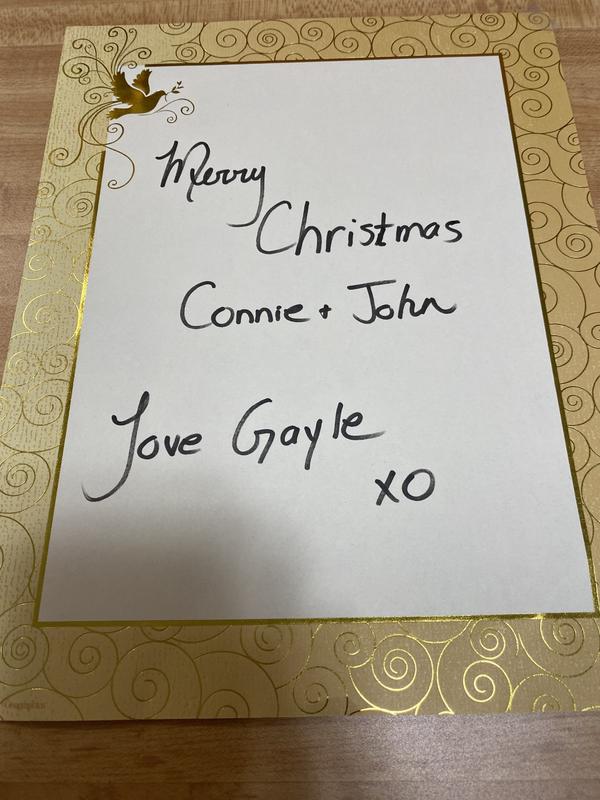 Merry
Christmas
Connie + John
Love Gayle
XO